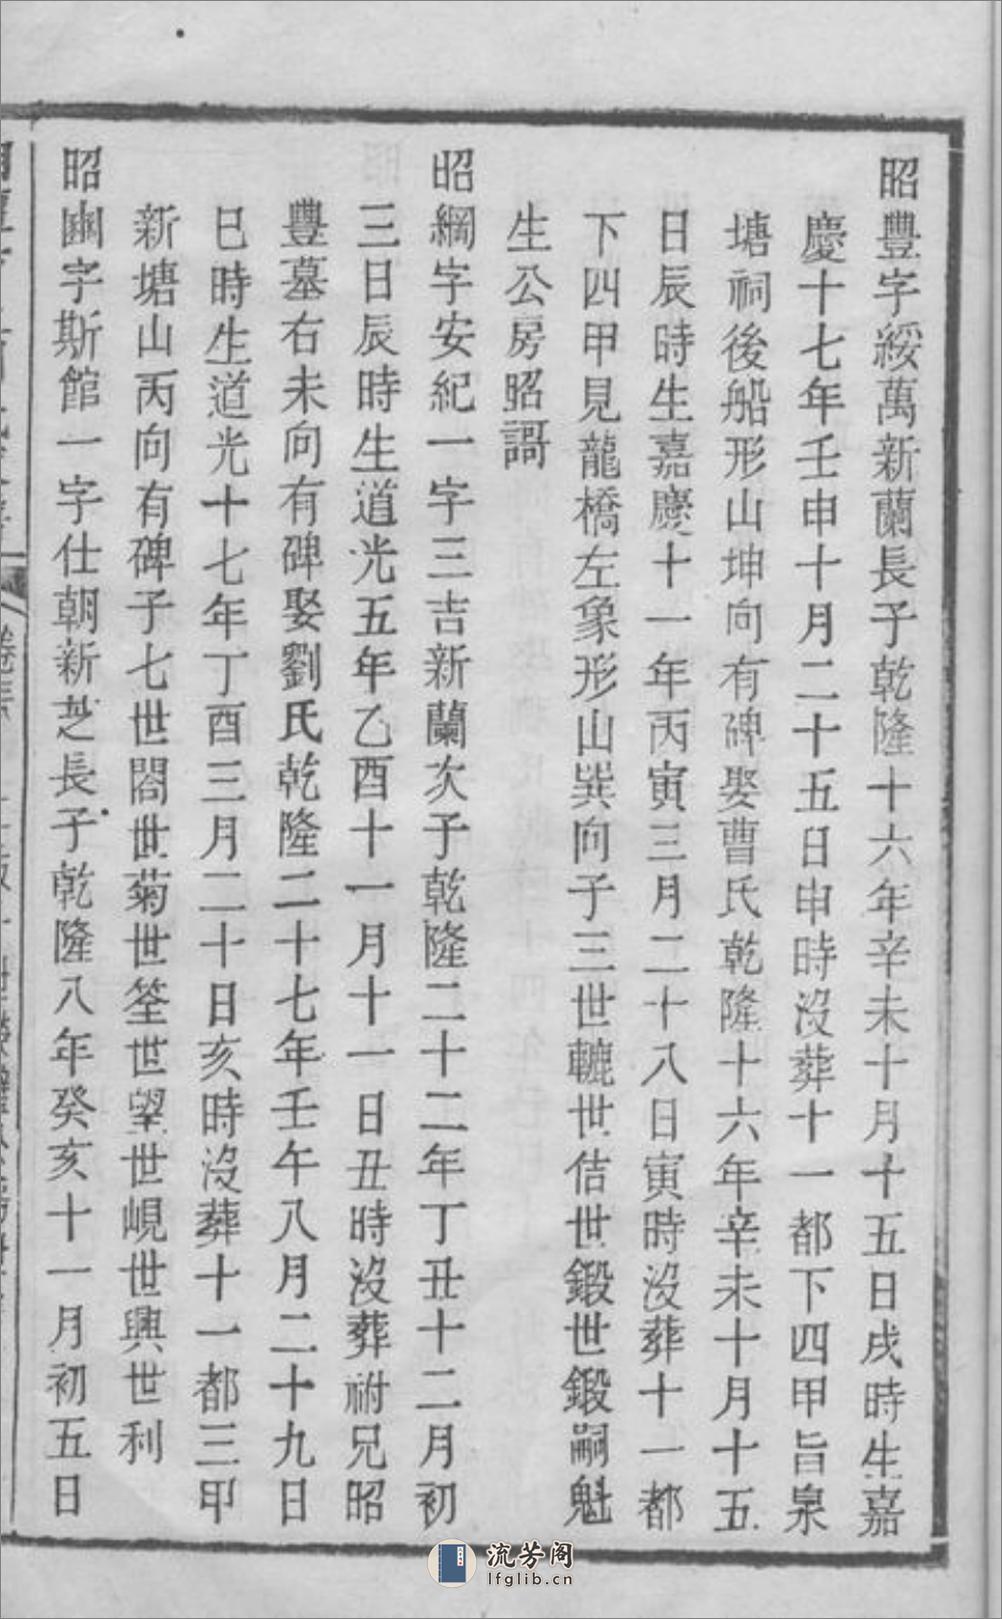 昭豐字綏萬新蘭長子乾隆十六年辛未十月十五日戌時生嘉
慶十七年壬申十月二十五日申時沒葬十一都下四甲旨泉
塘祠後船形山坤向有碑娶曹氏乾隆十六年辛未十月十五
日辰時生嘉慶十一年丙寅三月二十八日寅時沒葬十一都
下四甲見龍橋左象形山巽向子三世轆世佶世鍛世鍛嗣魁
生公房昭謌
昭綱字安紀一字三吉新蘭次子乾隆二十二年丁丑十二月初
三日辰時生道光五年乙酉十一月十一日丑時沒葬祔兄昭
豐墓右未向有碑娶劉氏乾隆二十七年壬午八月二十九日
巳時生道光十七年丁酉三月二十日亥時沒葬十一都三甲
新塘山丙向有碑子七世閤世菊世筌世望世峴世興世利
昭豳字斯館一字仕朝新芝長子乾隆八年癸亥十一月初五日
流芳阁
lfglib.cn